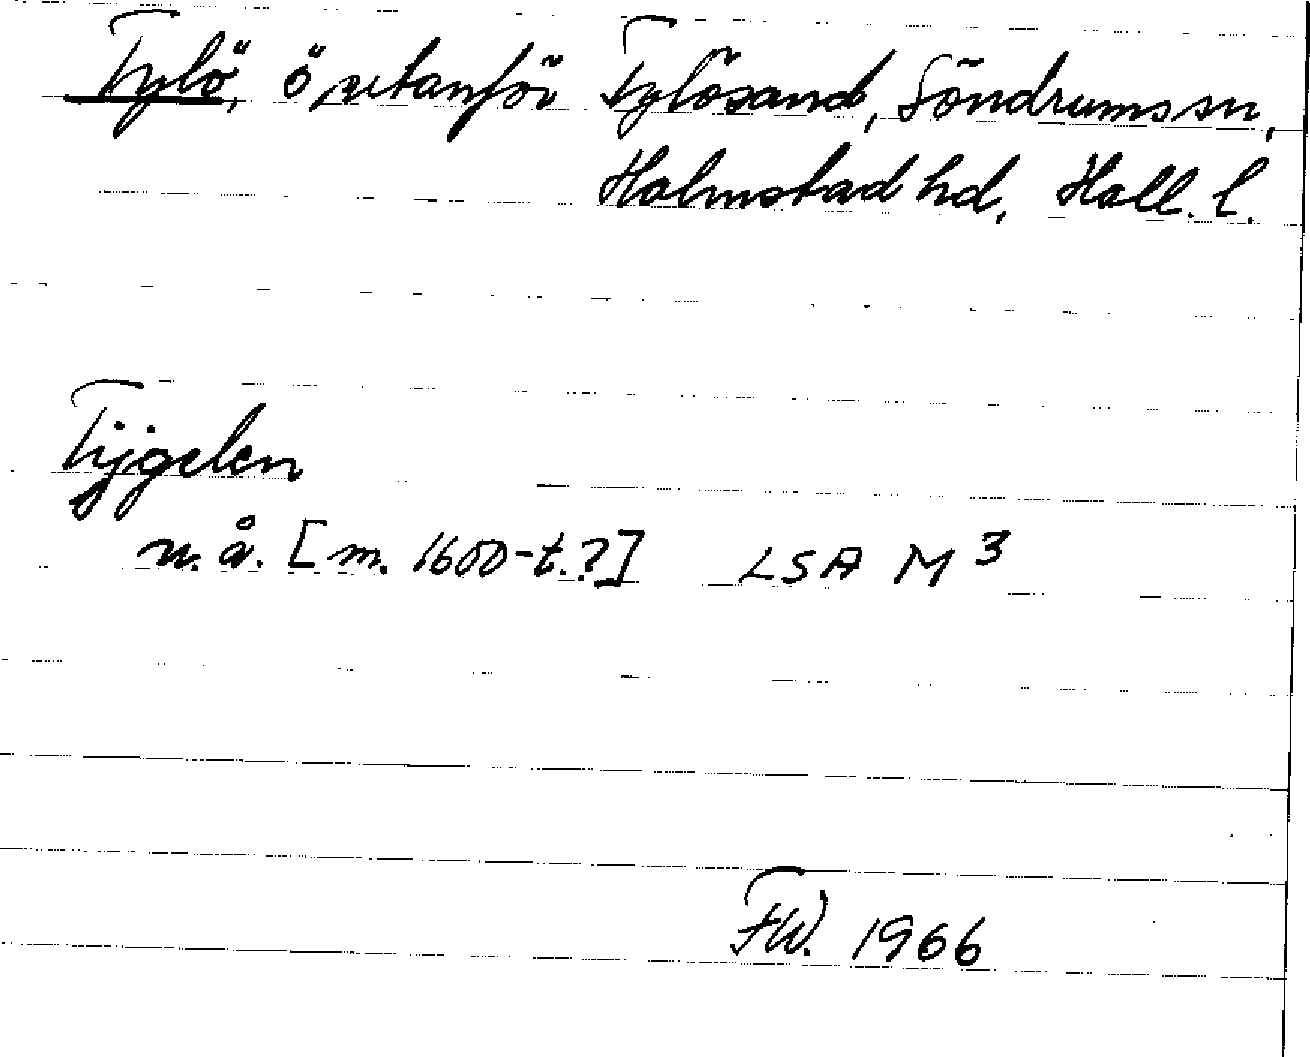 Tylö, ö utanför Tylösand, Söndrums sn,
Halmstad hd, Hall. l.
Tijgelen
u. å. [m. 1600-t.?] LSA M 3
FW. 1966